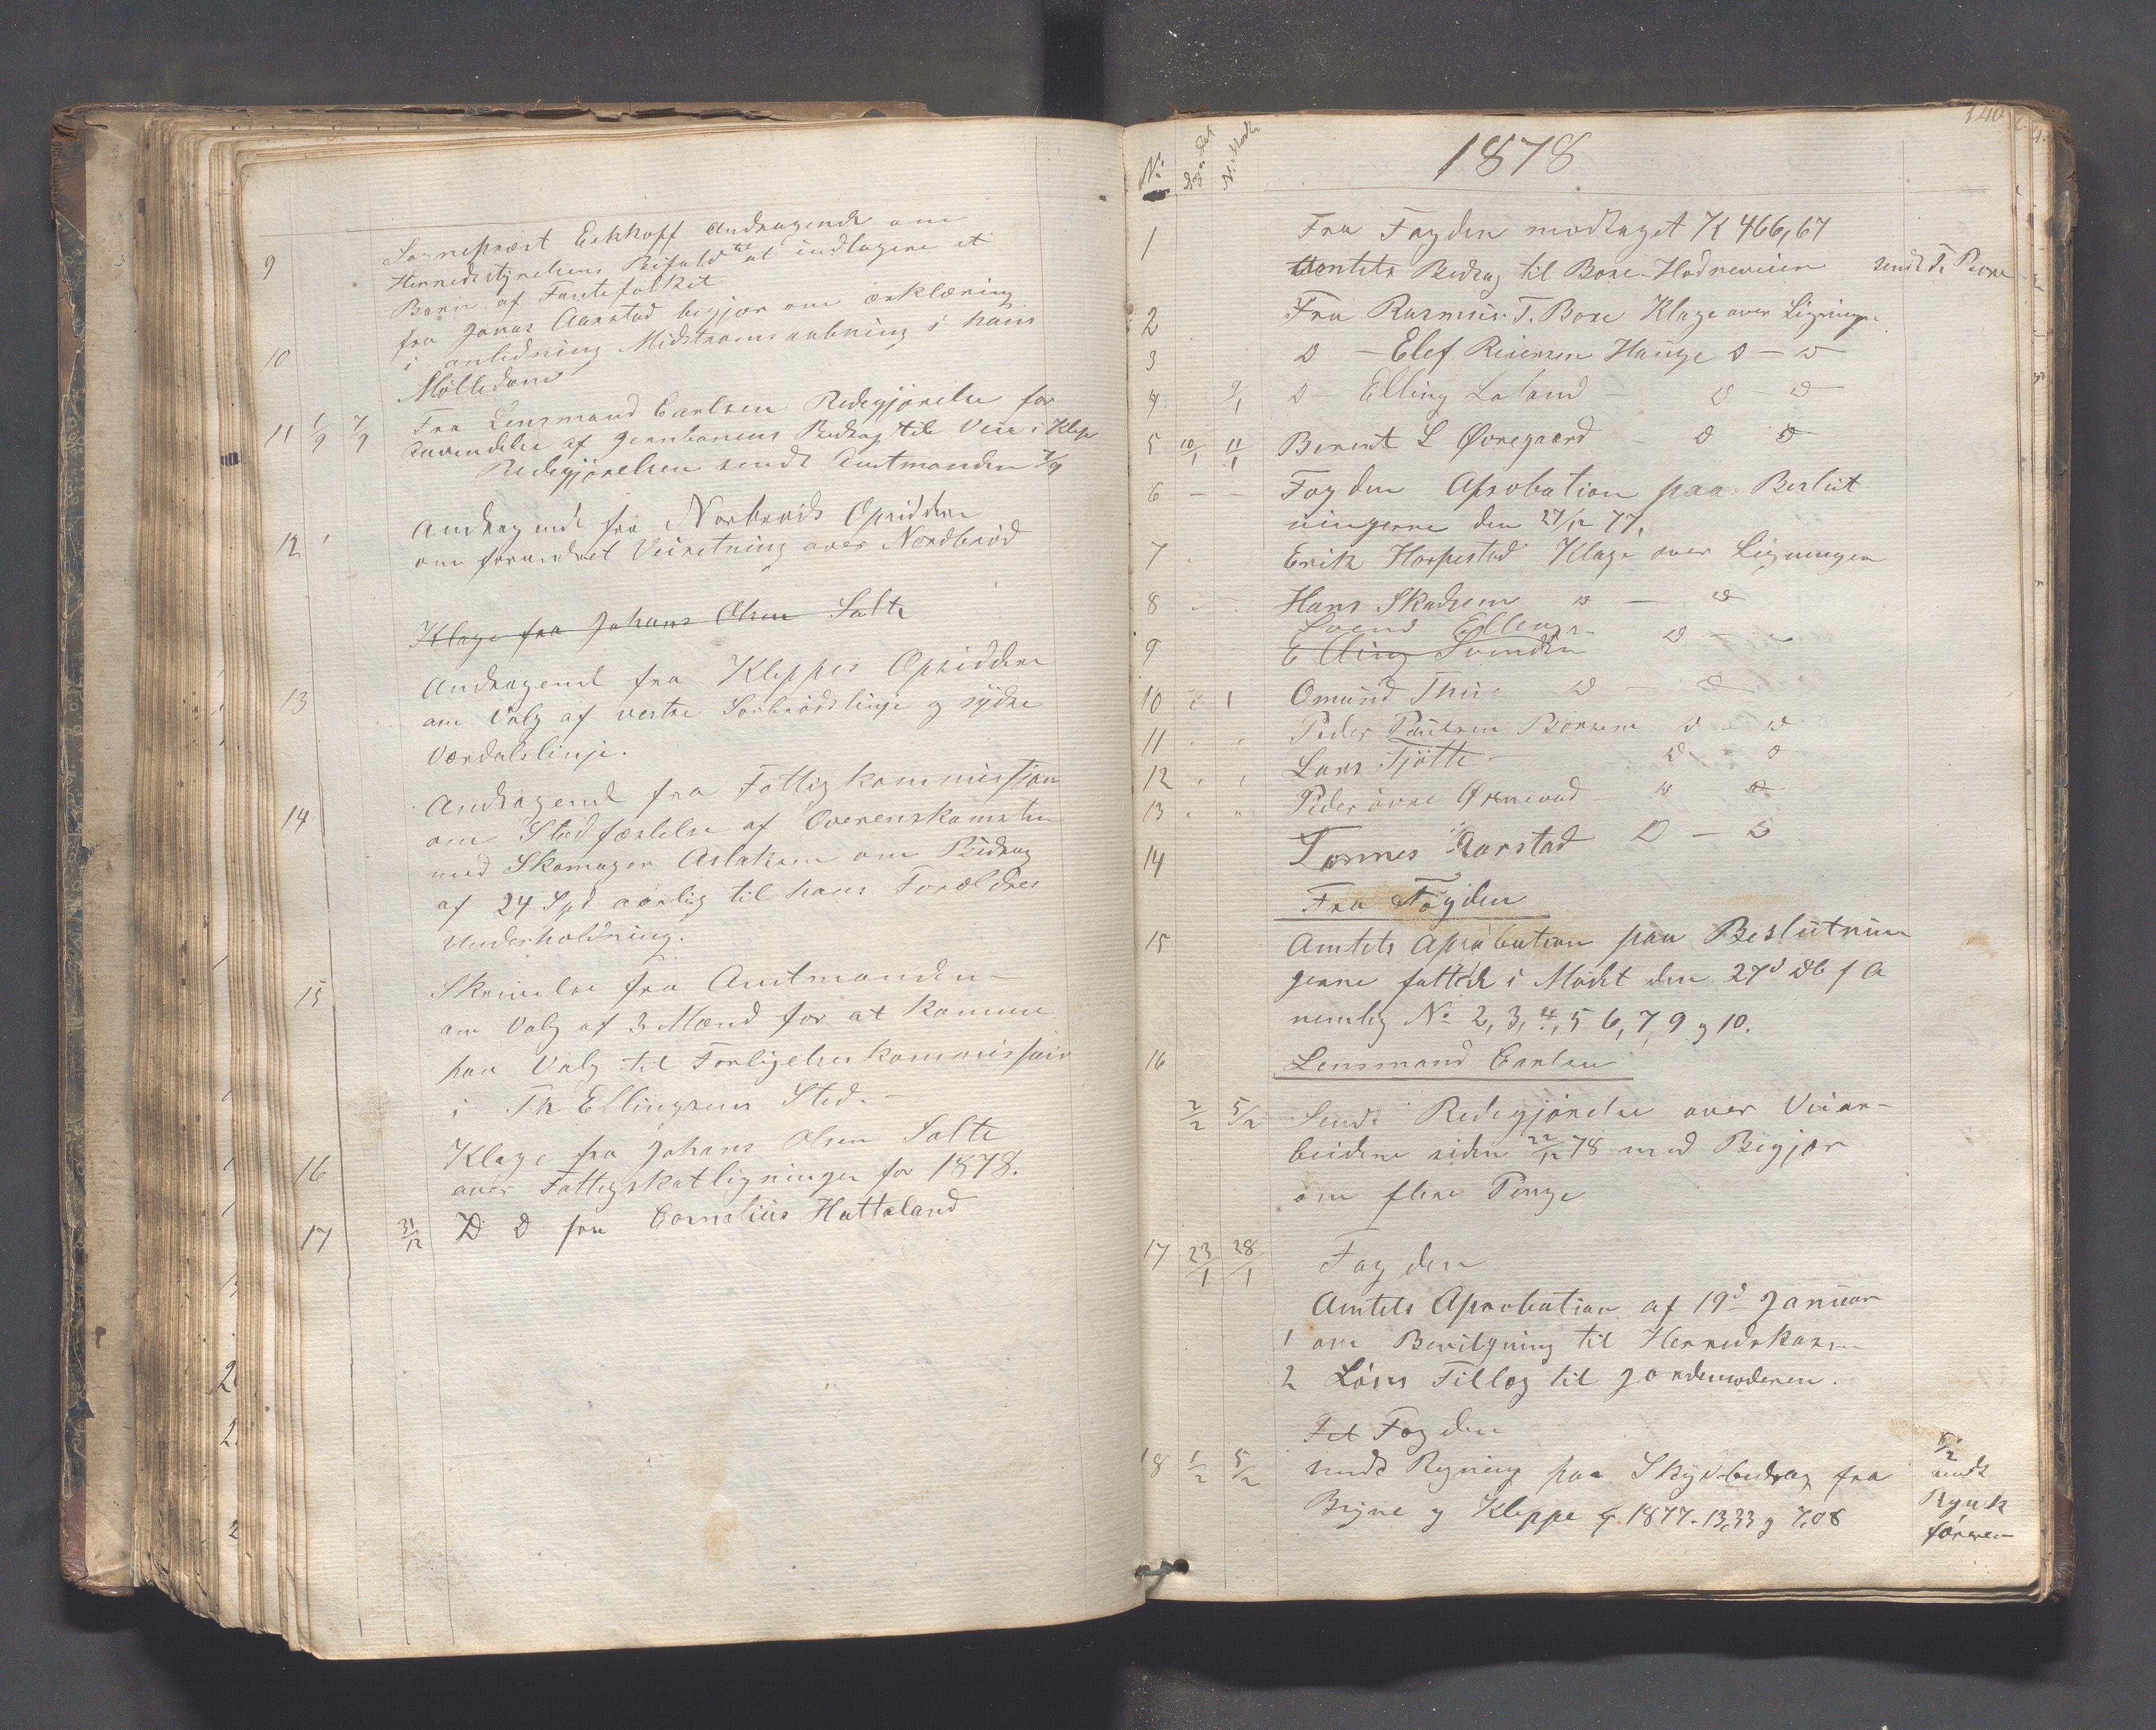 9 Sognepræst Eckhoff Andragende om
Herredsstyrelsens Bifald til at indlagere et
Barn af Fantefolket
10 fra Jonas Aarstad begjær om ærklæring
i anledning Midstrømsaabning i hans
Mölledam
11 1/9 7/9 Fra Lensmand Carlsen Redegjörelse for
Anvendelse af Jernbanens Bidrag til Veie i Klep
Redegjörelsen sendt Amtmanden 7/9
12 Andragende fra Norbröds Opsiddere
om forandret Veiretning over Nordbröd
Klage fra Johans Olsen Salte
13 Andragende fra Kleppes Opsiddere
om Valg af vestre Sorbrödslinje og sydre
Værdalslinje.
14 Andragende fra Fattigkommissjon
om Stadfæstelse af Overenskomsten
med Skomager Aslaksen om Bidrag
af 24 Spd aarlig til hans Forældres
Underholdning.
15 Skrivelse fra Amtmanden
om Valg af 3 Mænd for at komme
paa Valg til Forligelseskommissair
i Th Ellingsens Sted. -
16 Klage fra Johans Olsen Salte
over Fattigskatligningen for 1878.
17 31/12 D D fra Cornelius Hattaland
140
No
1878
1 Fra Fogden modtaget K 466,67
Amtets Bidrag til Bore-Hodneveien sendt T. Bore
2 Fra Rasmus T. Bore Klage over Ligningen
3 D - Elef Reiersen Hauge D - D
4 9/1 D - Elling Laland - D - D
5 10/1 11/1 Berent L Øvregaard - D D
6 - - Fogden Aprobation paa Beslut
ningerne den 27/12 77.
7 Erik Horpestad Klage over Ligningen
8 Hans Skadsem D - D
Svend Ellings
9 Elling Svendsen D -
10 Omund Thu D - D
11 Peder Paulsen Borsem D - D
12 Lars Tjötte - D - D
13 Peder övre Öxnevad D - D
14 Tönnes Aarstad D - D
Fra Fogden
15 Amtets Aprobation paa Beslutnin
gerne fattede i Mödet den 27d Db f A
nemlig No 2, 3, 4, 5 6, 7, 9 og 10.
16 Lensmand Carlsen
2/2 5/2 Sendt Redegjörelse over Veiar-
beidene siden 22/12 78 med Begjær
om flere Penge
17 23/1 28/1 Fogden
Amtets Aprobation af 19d Januar
1 om Bevilgning til Herredskassen
2 Löns Tillæg til Jordemoderen.
Fra Fogden
18 1/2 5/2 sendt Regning paa Skydsbidrag fra
Bryne og Kleppe f. 1877. 13,33 og 7,08
5/2
sendt
Regnsk
föreren